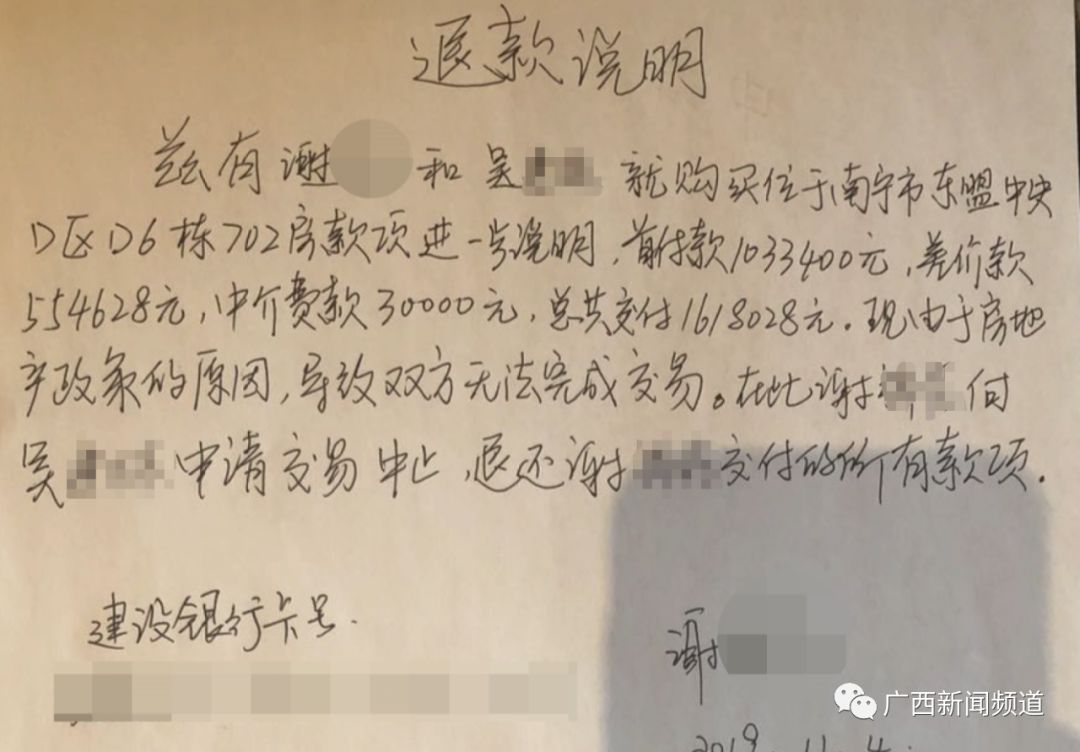 退款说明
兹有谢 和吴 就购买位于南宁市东盟中央
D区D6栋702房款项进一步说明,首付款1033400元,差价款
554628元,中介费款30000元,总共交付1618028元。现由于房地
产政策的原因,导致双方无法完成交易。在此谢 向
吴 申请交易中止,退还谢 交付的所有款项.
建设银行卡号.
谢
广西新闻频道